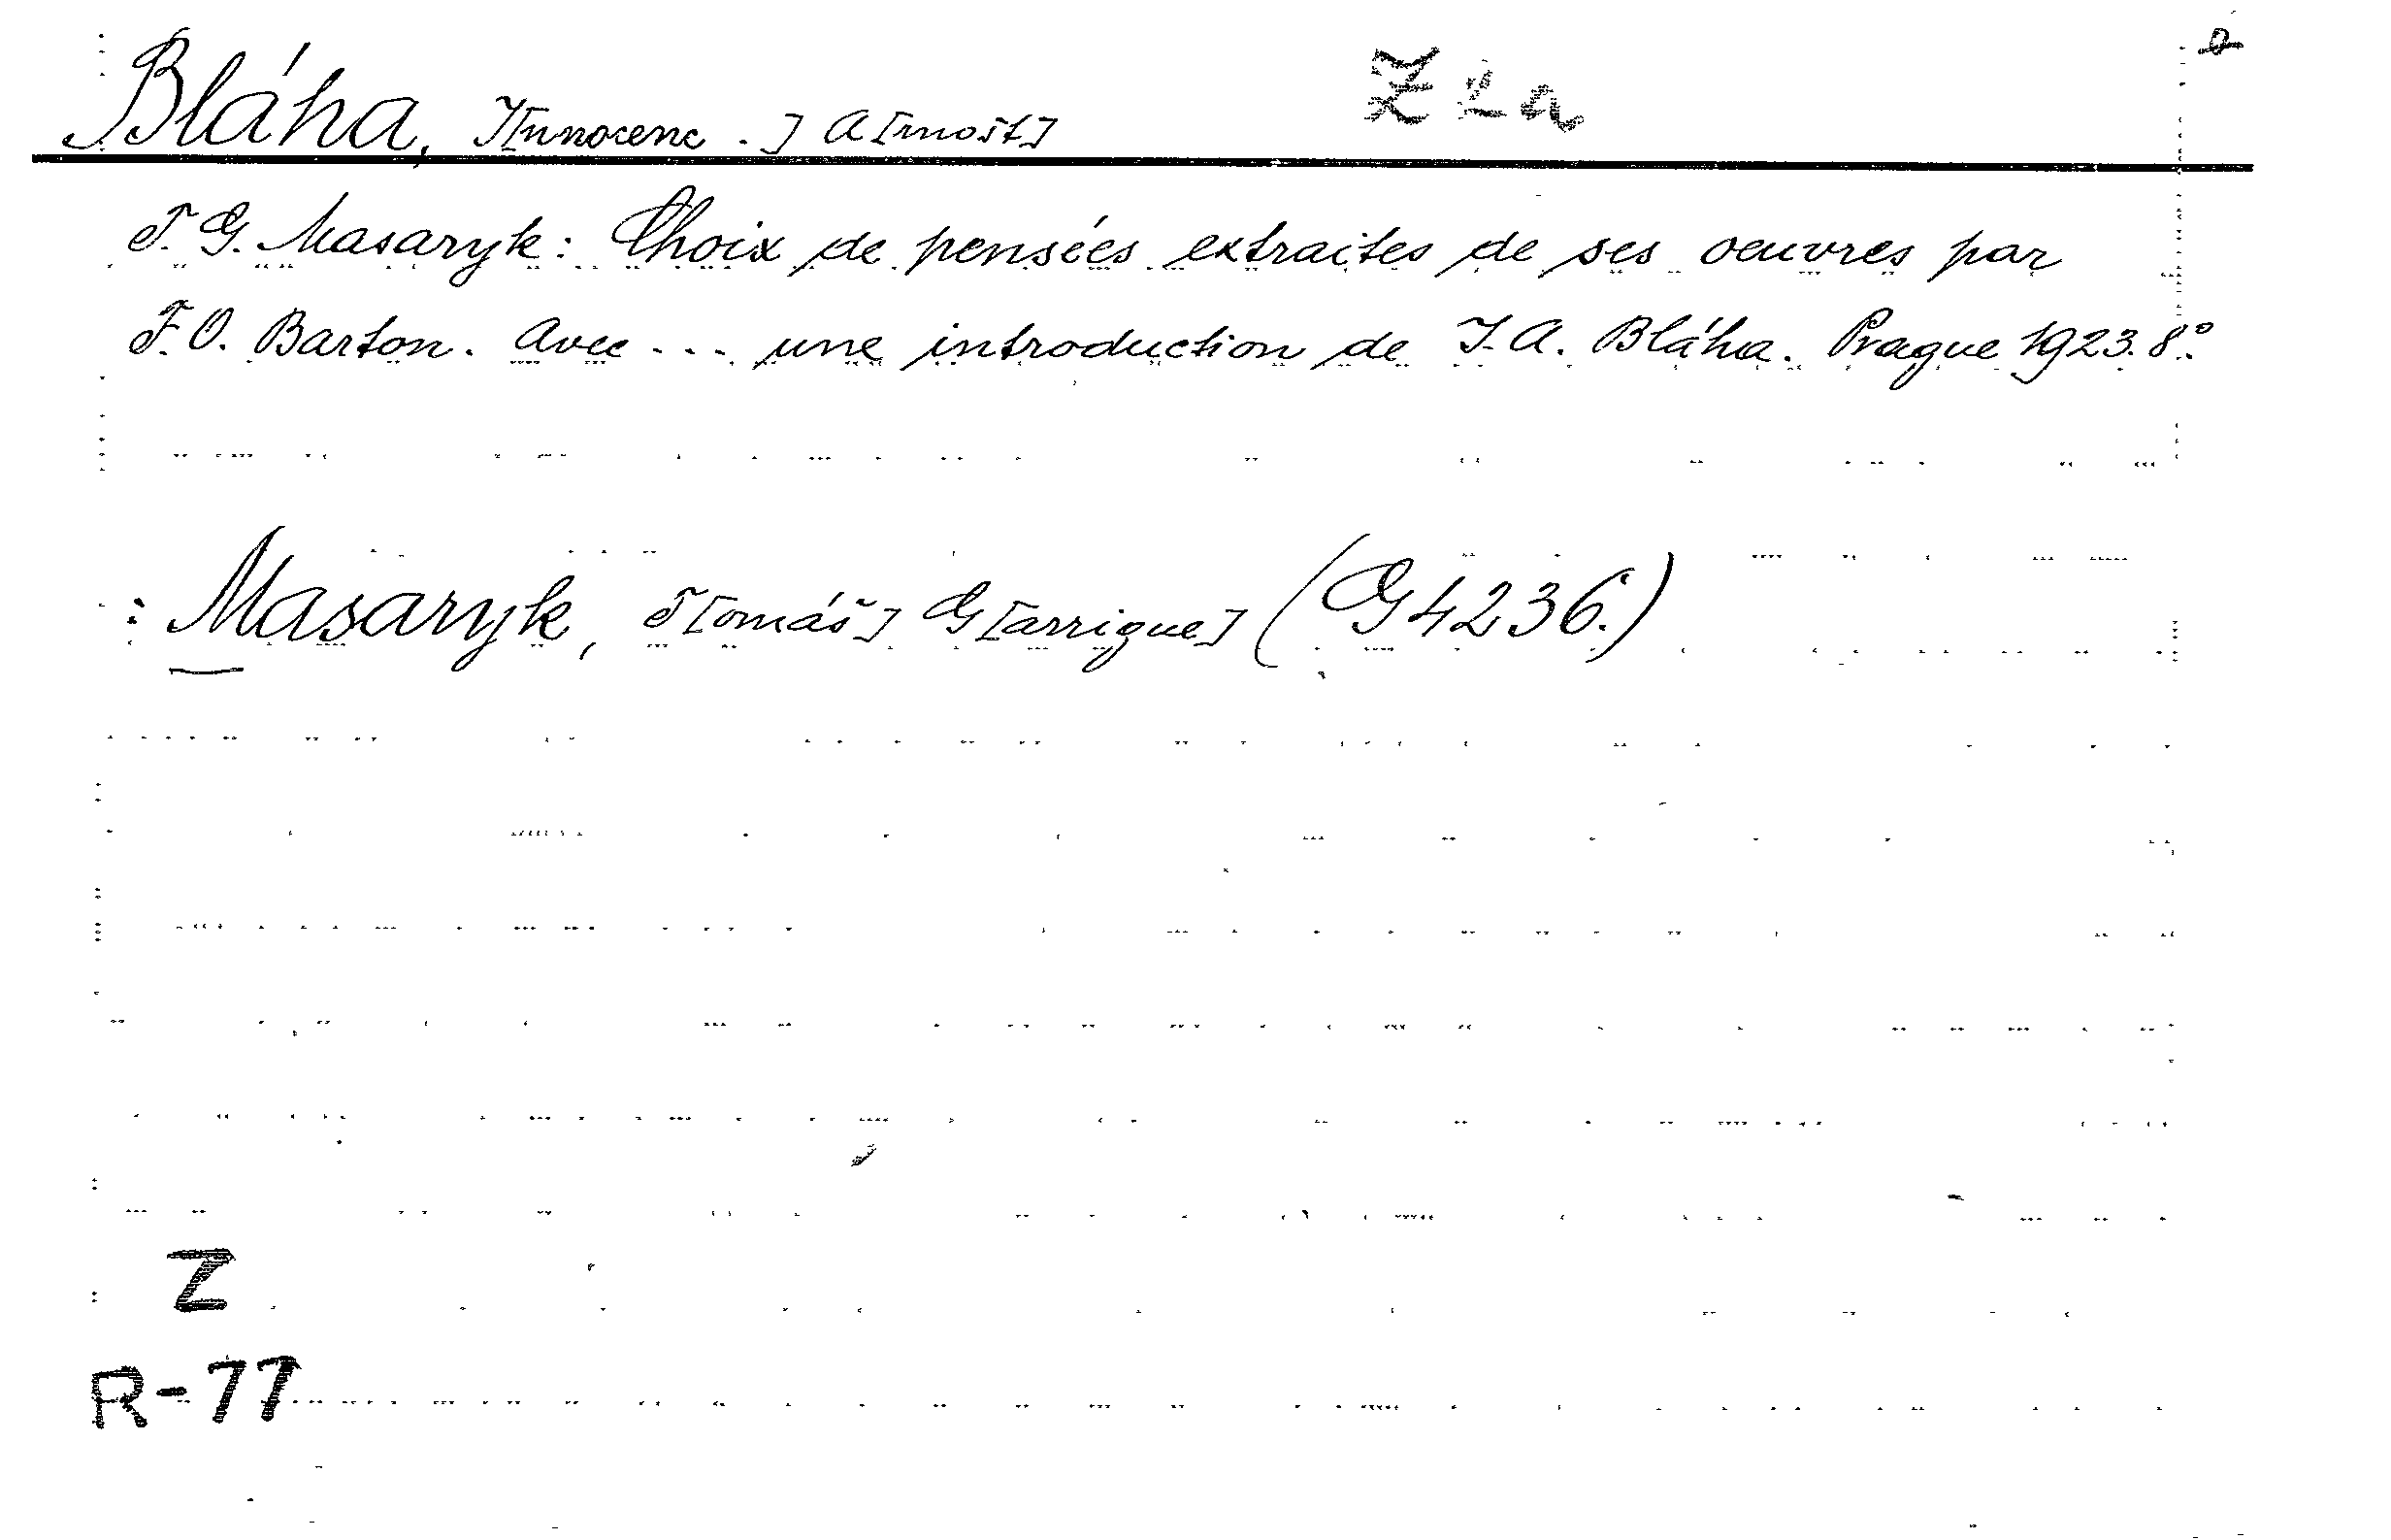 Bláha, I[nnocenc .] A[rnošt] Z 2a
T. G. Masaryk: Choix de pensées extraites de ses oeuvres par
F. O. Barton. Avec ... une introduction de I. A. Bláha. Prague 1923. 8°.
: Masaryk, T[omáš] G[arrigue] (G 4236.)
Z
R-77